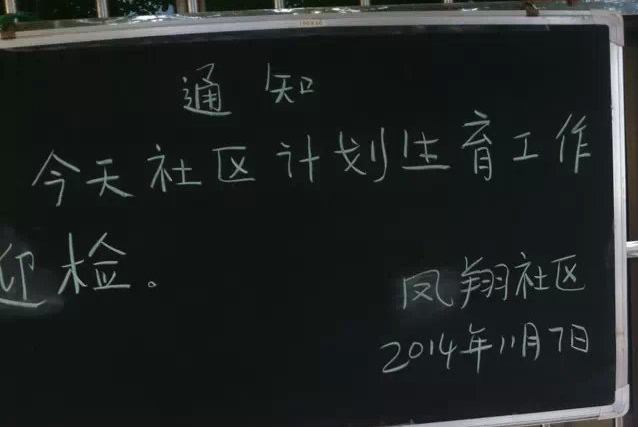 通知
今天社区计划生育工作
迎检。
凤翔社区
2014年11月7日